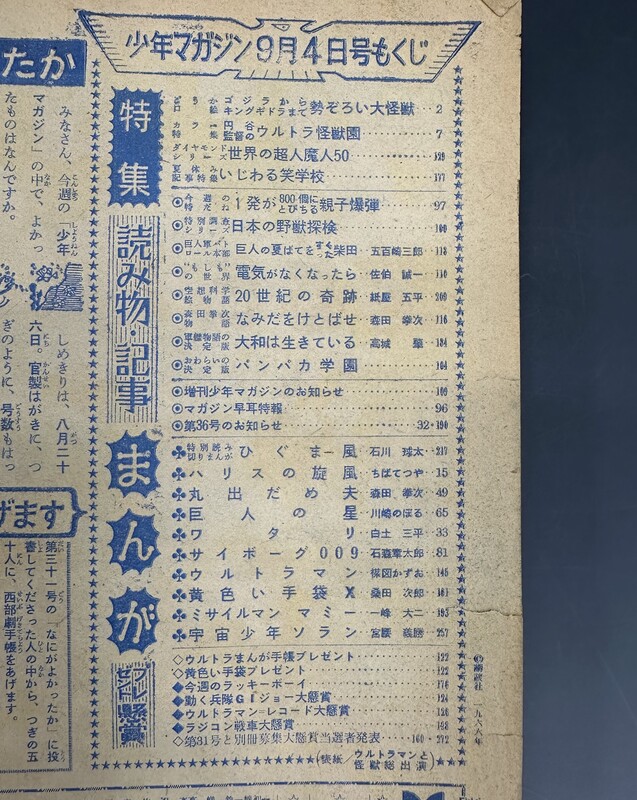 少年マガジン9月4日号もくじ
特集
とりか口絵 ゴジラからキングギドラまで 勢ぞろい大怪獣… 2
カラー特集 円谷監督の ウルトラ怪獣園… 7
ダイヤモンドシリーズ 世界の超人魔人50… 129
夏休み記事特集 いじわる笑学校… 177
読み物・記事
◎今週のだね 1発が800個にとびちる 親子爆弾… 97
◎特別調査シリーズ 日本の野獣探検… 100
◎巨人軍パトロール本部 巨人の夏ばてをすくった柴田 五百崎三郎… 113
◎“もしも”の世界 電気がなくなったら 佐伯誠一… 110
◎空想科学絵物語 20世紀の奇跡 紙屋五平… 209
◎森田拳次物語 なみだをけとばせ 森田拳次… 116
◎軍艦物語の決定版 大和は生きている 高城肇… 184
◎おわらいの決定版 パンパカ学園… 104
◎増刊少年マガジンのお知らせ… 109
◎マガジン早耳特報… 96
◎第36号のお知らせ… 32・190
まんが
♣特別読み切りまんが ひぐま風 石川球太… 217
♣ハリスの旋風 ちばてつや… 15
♣丸出だめ夫 森田拳次… 49
♣巨人の星 川崎のぼる… 65
♣ワタリ 白土三平… 33
♣サイボーグ009 石森章太郎… 81
♣ウルトラマン 楳図かずお… 145
♣黄色い手袋X 桑田次郎… 161
♣ミサイルマンマミー 一峰大二… 193
♣宇宙少年ソラン 宮腰義勝… 257
プレゼント・懸賞
◇ウルトラまんが手帳プレゼント… 122
◇黄色い手袋プレゼント… 122
◆今週のラッキーボーイ… 176
◆動く兵隊GIジョー大懸賞… 124
◆ウルトラマン=レコード大懸賞… 126
◆ラジコン戦車大懸賞… 142
◇第31号と別冊募集大懸賞当選者発表… 160・272
(表紙/ウルトラマンと怪獣総出演)
©講談社 一九六六年
たか
みなさん、今週の「少年
マガジン」の中で、よかっ
たものはなんですか。
しめきりは、八月二十
六日。官製はがきに、つ
ぎのように、号数もはっ
げます
第三十一号の「なにがよかったか」に投
書してくださった人の中から、つぎの五
十人に、西部劇手帳をあげます。